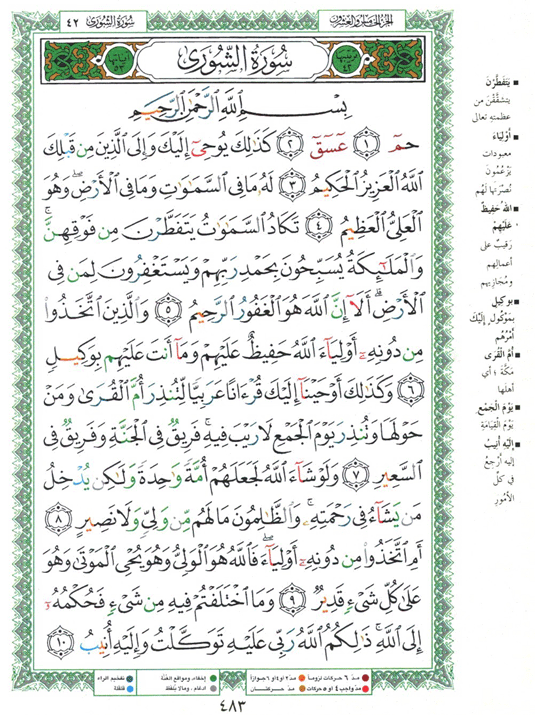 سُورَةُ الشُّورَىٰ ٤٢
الجزء الخامس والعشرون
ترتيبها ٤٢
سُورَةُ الشُّورَىٰ
آياتها ٥٣
بِسْمِ اللَّهِ الرَّحْمَٰنِ الرَّحِيمِ
حمٓ ۝١ عٓسٓقٓ ۝٢ كَذَٰلِكَ يُوحِىٓ إِلَيْكَ وَإِلَى ٱلَّذِينَ مِن قَبْلِكَ
ٱللَّهُ ٱلْعَزِيزُ ٱلْحَكِيمُ ۝٣ لَهُۥ مَا فِى ٱلسَّمَٰوَٰتِ وَمَا فِى ٱلْأَرْضِ ۖ وَهُوَ
ٱلْعَلِىُّ ٱلْعَظِيمُ ۝٤ تَكَادُ ٱلسَّمَٰوَٰتُ يَتَفَطَّرْنَ مِن فَوْقِهِنَّ ۚ
وَٱلْمَلَٰٓئِكَةُ يُسَبِّحُونَ بِحَمْدِ رَبِّهِمْ وَيَسْتَغْفِرُونَ لِمَن فِى
ٱلْأَرْضِ ۗ أَلَآ إِنَّ ٱللَّهَ هُوَ ٱلْغَفُورُ ٱلرَّحِيمُ ۝٥ وَٱلَّذِينَ ٱتَّخَذُوا۟
مِن دُونِهِۦٓ أَوْلِيَآءَ ٱللَّهُ حَفِيظٌ عَلَيْهِمْ وَمَآ أَنتَ عَلَيْهِم بِوَكِيلٍ
۝٦ وَكَذَٰلِكَ أَوْحَيْنَآ إِلَيْكَ قُرْءَانًا عَرَبِيًّا لِّتُنذِرَ أُمَّ ٱلْقُرَىٰ وَمَنْ
حَوْلَهَا وَتُنذِرَ يَوْمَ ٱلْجَمْعِ لَا رَيْبَ فِيهِ ۚ فَرِيقٌ فِى ٱلْجَنَّةِ وَفَرِيقٌ فِى
ٱلسَّعِيرِ ۝٧ وَلَوْ شَآءَ ٱللَّهُ لَجَعَلَهُمْ أُمَّةً وَٰحِدَةً وَلَٰكِن يُدْخِلُ
مَن يَشَآءُ فِى رَحْمَتِهِۦ ۚ وَٱلظَّٰلِمُونَ مَا لَهُم مِّن وَلِىٍّ وَلَا نَصِيرٍ ۝٨
أَمِ ٱتَّخَذُوا۟ مِن دُونِهِۦٓ أَوْلِيَآءَ ۖ فَٱللَّهُ هُوَ ٱلْوَلِىُّ وَهُوَ يُحْىِ ٱلْمَوْتَىٰ وَهُوَ
عَلَىٰ كُلِّ شَىْءٍ قَدِيرٌ ۝٩ وَمَا ٱخْتَلَفْتُمْ فِيهِ مِن شَىْءٍ فَحُكْمُهُۥٓ
إِلَى ٱللَّهِ ۚ ذَٰلِكُمُ ٱللَّهُ رَبِّى عَلَيْهِ تَوَكَّلْتُ وَإِلَيْهِ أُنِيبُ ۝١٠
■ يَتَفَطَّرْنَ
يتشققن من
عظمته تعالى
■ أَوْلِيَاءَ
معبودات
يزعمون
نصرتها لهم
■ اللهُ حَفِيظٌ
عَلَيْهِمْ
رقيب على
أعمالهم
ومجازيهم
■ بِوَكِيلٍ
بموكول إليك
أمرهم
■ أُمَّ الْقُرَى
مكة ؛ أي
أهلها
■ يَوْمَ الْجَمْعِ
يوم القيامة
■ إِلَيْهِ أُنِيبُ
إليه أرجع
في كل
الأمور
مدّ ٦ حركات لزوماً
مدّ ٢ أو ٤ أو ٦ جوازاً
إخفاء، ومواقع الغنّة
تفخيم الراء
مدّ واجب ٤ أو ٥ حركات
مدّ حركتان
إدغام، وما لا يُلفظ
قلقلة
٤٨٣